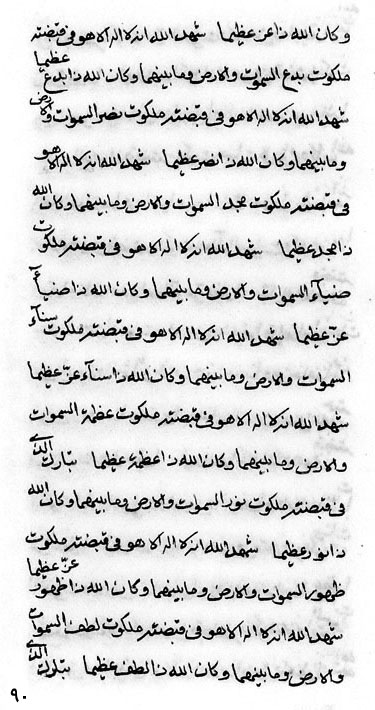 وكان الله ذا عز عظيما شهد الله انه لا اله الا هو في قبضته
ملكوت بدع السموات والارض وما بينهما وكان الله ذا بدع عظيما
شهد الله انه لا اله الا هو في قبضته ملكوت نصر السموات والارض
وما بينهما وكان الله ذا نصر عظيما شهد الله انه لا اله الا هو
في قبضته ملكوت مجد السموات والارض وما بينهما وكان الله
ذا مجد عظيما شهد الله انه لا اله الا هو في قبضته ملكوت
ضياء السموات والارض وما بينهما وكان الله ذا ضياء
عز عظيما شهد الله انه لا اله الا هو في قبضته ملكوت سناء
السموات والارض وما بينهما وكان الله ذا سناء عز عظيما
شهد الله انه لا اله الا هو في قبضته ملكوت عظمة السموات
والارض وما بينهما وكان الله ذا عظمة عظيما تبارك الذي
في قبضته ملكوت نور السموات والارض وما بينهما وكان الله
ذا نور عظيما شهد الله انه لا اله الا هو في قبضته ملكوت
ظهور السموات والارض وما بينهما وكان الله ذا ظهور عز عظيما
شهد الله انه لا اله الا هو في قبضته ملكوت لطف السموات
والارض وما بينهما وكان الله ذا لطف عظيما تبارك الذي
٩٠